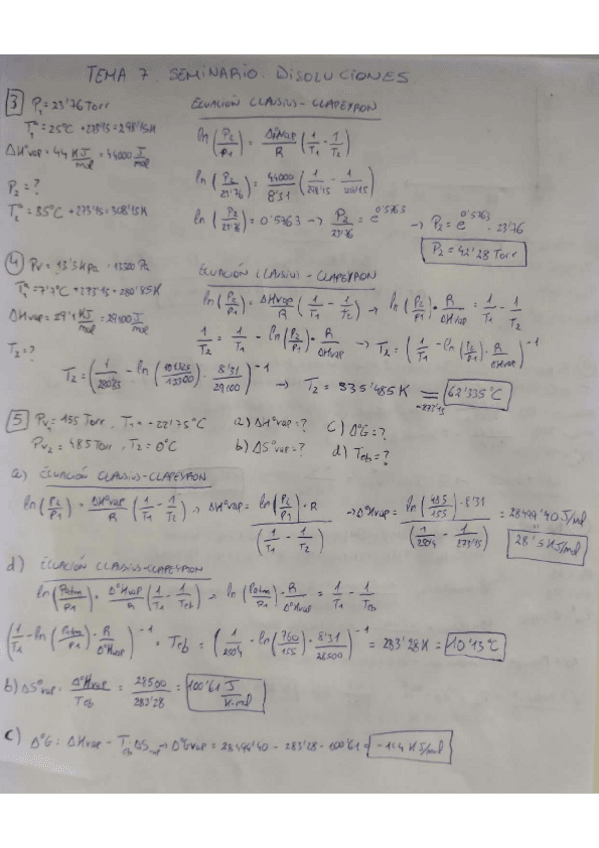 TEMA 7. SEMINARIO. DISOLUCIONES
3 P₁ = 23'76 Torr
T₁ª = 25ºC + 273'15 = 298'15K
ΔHºvap = 44 KJ/mol = 44000 J/mol
P₂ = ?
T₂ª = 35ºC + 273'15 = 308'15K
ECUACIÓN CLAUSIUS - CLAPEYRON
ln(P₂/P₁) = ΔºHvap/R (1/T₁ - 1/T₂)
ln(P₂/23'76) = 44000/8'31 (1/298'15 - 1/308'15)
ln(P₂/23'76) = 0'5763 → P₂/23'76 = e^0'5763 → P₂ = e^0'5763 · 23'76
P₂ = 42'28 Torr
4 Pv = 13'3 KPa = 13300 Pa
T₁ª = 7'7ºC + 273'15 = 280'85K
ΔHvap = 29'1 KJ/mol = 29100 J/mol
T₂ = ?
ECUACIÓN CLAUSIUS - CLAPEYRON
ln(P₂/P₁) = ΔHvap/R (1/T₁ - 1/T₂) → ln(P₂/P₁) · R/ΔHvap = 1/T₁ - 1/T₂
1/T₂ = 1/T₁ - ln(P₂/P₁) · R/ΔHvap → T₂ = (1/T₁ - ln(P₂/P₁) · R/ΔHvap)⁻¹
T₂ = (1/280'85 - ln(101325/13300) · 8'31/29100)⁻¹ → T₂ = 335'485K = 62'335ºC
-273'15
5 Pv₁ = 155 Torr, T₁ = -22'75ºC a) ΔHºvap = ? c) ΔºG = ?
Pv₂ = 485 Torr, T₂ = 0ºC b) ΔSºvap = ? d) Teb = ?
a) ECUACIÓN CLAUSIUS-CLAPEYRON
ln(P₂/P₁) = ΔHºvap/R (1/T₁ - 1/T₂) → ΔHºvap = ln(P₂/P₁) · R / (1/T₁ - 1/T₂) → ΔºHvap = ln(485/155) · 8'31 / (1/250'4 - 1/273'15) = 28499'40 J/mol
28'5 KJ/mol
d) ECUACIÓN CLAUSIUS-CLAPEYRON
ln(Patm/P₁) = ΔºHvap/R (1/T₁ - 1/Teb) = ln(Patm/P₁) · R/ΔºHvap = 1/T₁ - 1/Teb
(1/T₁ - ln(Patm/P₁) · R/ΔºHvap)⁻¹ = Teb = (1/250'4 - ln(760/155) · 8'31/28500)⁻¹ = 283'28K = 10'13ºC
b) ΔSºvap = ΔºHvap/Teb = 28500/283'28 = 100'61 J/K·mol
c) ΔºG = ΔHvap - Teb · ΔSvap → ΔºGvap = 28499'40 - 283'28 · 100'61 =